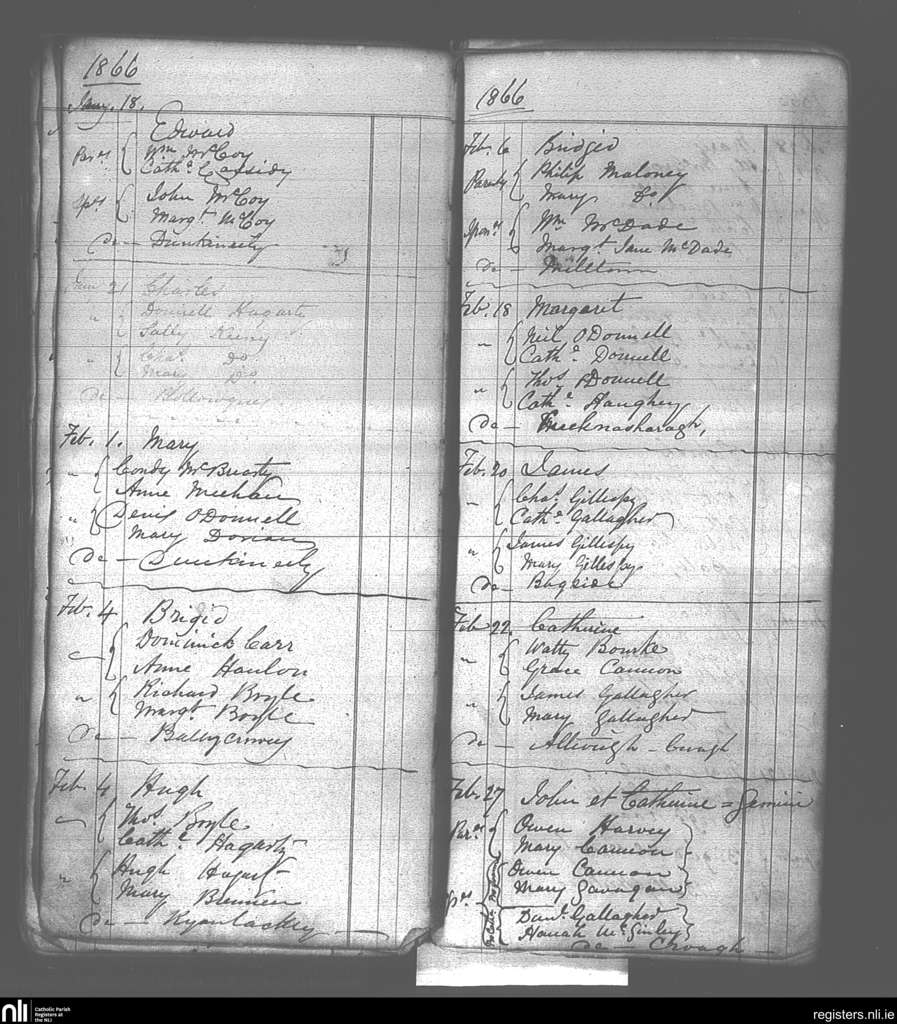 1866
Jany. 18.
Edward
Par.ts Wm McCoy
Cath.e Cassidy
Sp.rs John McCoy
Margt. McCoy
de — Dunkineely
21 Charles
Donnell Hagarty
Sally Keeny
Chas. do
Mary Do.
de —
Feb. 1. Mary
" Condy McBrearty
Anne Meehan
" Denis O'Donnell
Mary Dorian
De — Dunkineely
Feb. 4 Brigid
Dominick Carr
Anne Hanlon
" Richard Boyle
Margt. Boyle
de — Ballycroy
Feb. 4 Hugh
Thos. Boyle
Cath.e Hagarty
" Hugh Hagarty
Mary
De —
1866
Feb. 6 Bridgid
Parents Philip Maloney
Mary do.
Spons Wm McDade
Margt Jane McDade
de — Milltown
Feb. 18 Margaret
" Neil O'Donnell
Cath.e Donnell
" Thos. O'Donnell
Cath.e Haughey
de —
Feb. 20 James
" Chas. Gillespy
Cath.e Gallagher
" James Gillespy
Mary Gillespy
De — Bogside
Feb 22. Catherine
" Watty Bourke
Grace Cannon
" James Gallagher
Mary Gallagher
de — Croagh
Feb. 27 John et Catherine = Gemini
Par.ts Owen Harvey
Mary Cannon
Owen Cannon
Mary Gavagan
Sp.rs Danl. Gallagher
Hanah McGinley
de — Croagh
nli
Catholic Parish
Registers at
the NLI
registers.nli.ie